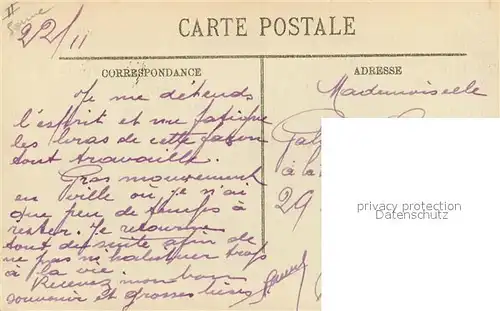 II
Somme
22/11
CARTE POSTALE
CORRESPONDANCE
ADRESSE
Je me détends
l'esprit et me fatigue
les bras de cette façon
tout travaille.
Gros mouvement
en ville où je n'ai
que peu de temps à
rester. Je retourne
tout de suite afin de
ne pas m'habituer trop
à la vie.
Recevez mon bon
souvenir et grosses bises
Mademoiselle
à la
29
privacy protection
Datenschutz